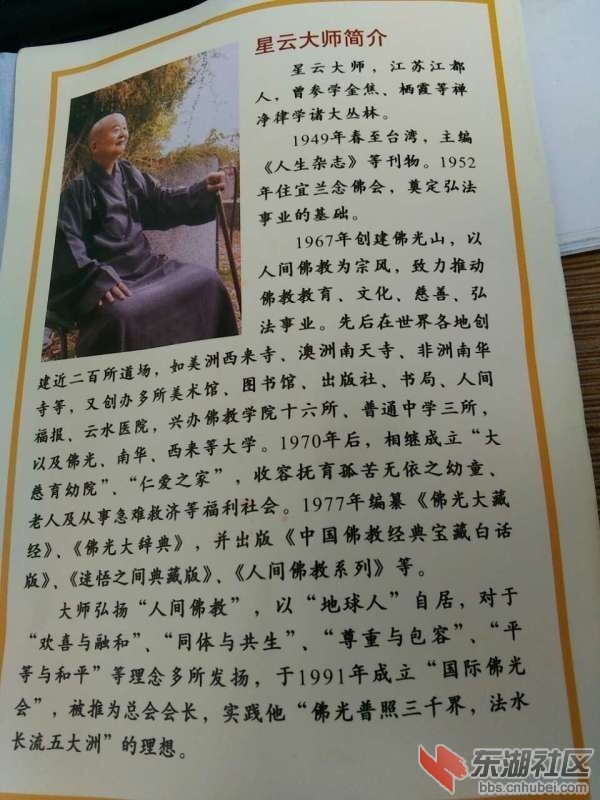 星云大师简介
星云大师，江苏江都
人，曾参学金焦、栖霞等禅
净律学诸大丛林。
1949年春至台湾，主编
《人生杂志》等刊物。1952
年住宜兰念佛会，奠定弘法
事业的基础。
1967年创建佛光山，以
人间佛教为宗风，致力推动
佛教教育、文化、慈善、弘
法事业。先后在世界各地创
建近二百所道场，如美洲西来寺、澳洲南天寺、非洲南华
寺等，又创办多所美术馆、图书馆、出版社、书局、人间
福报、云水医院，兴办佛教学院十六所、普通中学三所，
以及佛光、南华、西来等大学。1970年后，相继成立“大
慈育幼院”、“仁爱之家”，收容抚育孤苦无依之幼童、
老人及从事急难救济等福利社会。1977年编纂《佛光大藏
经》、《佛光大辞典》，并出版《中国佛教经典宝藏白话
版》、《迷悟之间典藏版》、《人间佛教系列》等。
大师弘扬“人间佛教”，以“地球人”自居，对于
“欢喜与融和”、“同体与共生”、“尊重与包容”、“平
等与和平”等理念多所发扬，于1991年成立“国际佛光
会”，被推为总会会长，实践他“佛光普照三千界，法水
长流五大洲”的理想。
东湖社区
bbs.cnhubei.com